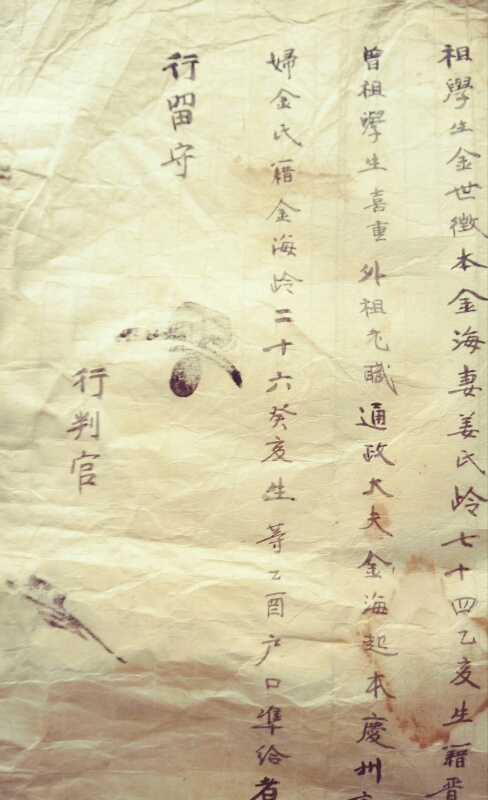 祖學生金世徵本金海妻姜氏岭七十四乙亥生籍晋
曾祖學生喜重外祖老職通政大夫金海起本慶州
婦金氏籍金海岭二十六癸亥生等乙酉户口準給者
行留守
行判官